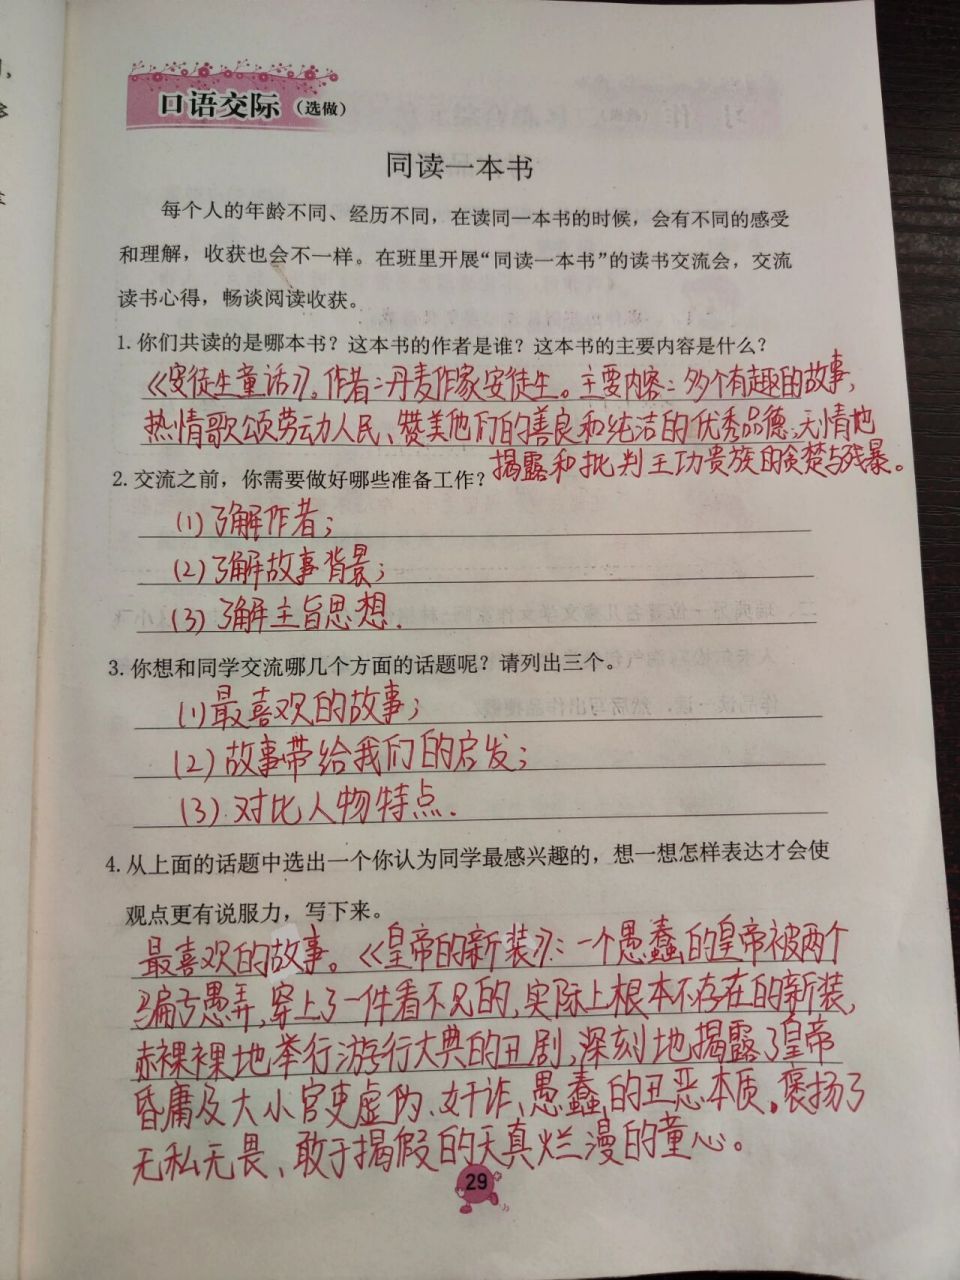 口语交际（选做）
同读一本书
每个人的年龄不同、经历不同，在读同一本书的时候，会有不同的感受
和理解，收获也会不一样。在班里开展“同读一本书”的读书交流会，交流
读书心得，畅谈阅读收获。
1. 你们共读的是哪本书？这本书的作者是谁？这本书的主要内容是什么？
《安徒生童话》。作者：丹麦作家安徒生。主要内容：多个有趣的故事，
热情歌颂劳动人民、赞美他们的善良和纯洁的优秀品德；无情地
揭露和批判王功贵族的贪婪与残暴。
2. 交流之前，你需要做好哪些准备工作？
(1)了解作者；
(2)了解故事背景；
(3)了解主旨思想.
3. 你想和同学交流哪几个方面的话题呢？请列出三个。
(1)最喜欢的故事；
(2)故事带给我们的启发；
(3)对比人物特点.
4. 从上面的话题中选出一个你认为同学最感兴趣的，想一想怎样表达才会使
观点更有说服力，写下来。
最喜欢的故事。《皇帝的新装》：一个愚蠢的皇帝被两个
骗子愚弄，穿上了一件看不见的，实际上根本不存在的新装，
赤裸裸地举行游行大典的丑剧，深刻地揭露了皇帝
昏庸及大小官吏虚伪、奸诈、愚蠢的丑恶本质。褒扬了
无私无畏、敢于揭假的天真烂漫的童心。
29